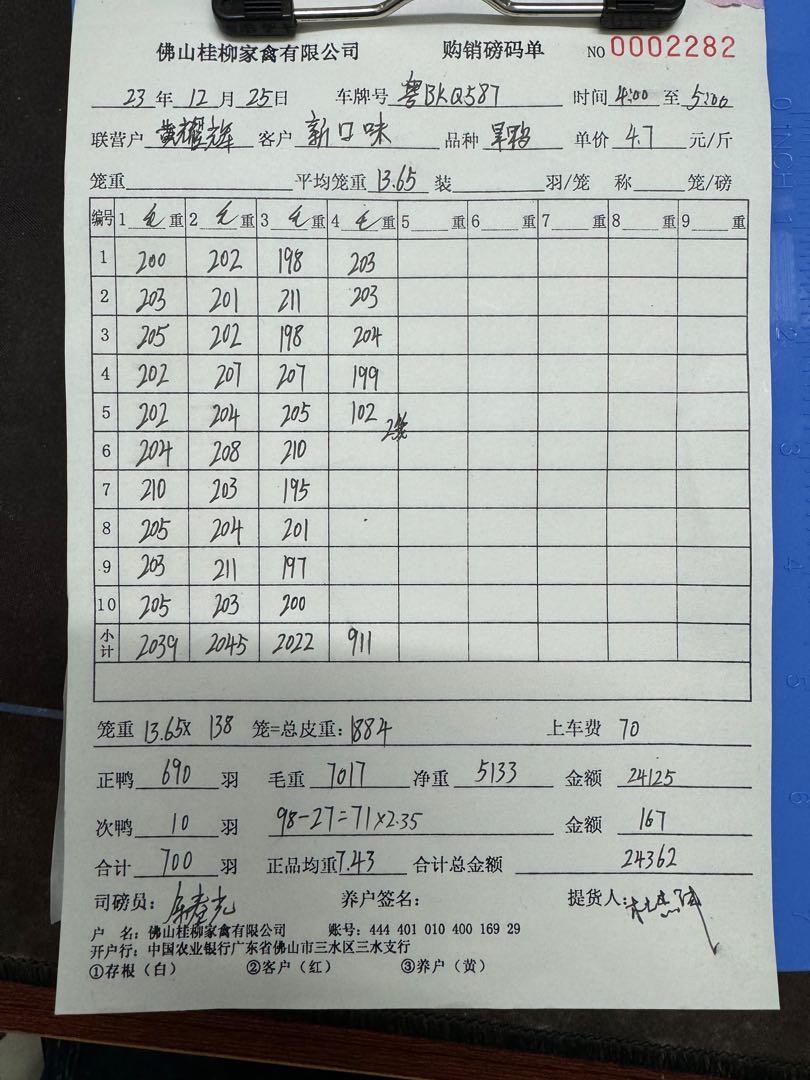 佛山桂柳家禽有限公司 购销磅码单 NO 0002282
23 年 12 月 25 日 车牌号 粤BKQ587 时间 4:00 至 5:00
联营户 黄耀辉 客户 新口味 品种 旱鸭 单价 4.7 元/斤
笼重 平均笼重 13.65 装 羽/笼 称 笼/磅
编号 1 毛 重 2 毛 重 3 毛 重 4 毛 重 5 重 6 重 7 重 8 重 9 重
1 200 202 198 203
2 203 201 211 203
3 205 202 198 204
4 202 207 207 199
5 202 204 205 102 2笼
6 204 208 210
7 210 203 195
8 205 204 201
9 203 211 197
10 205 203 200
小计 2039 2045 2022 911
笼重 13.65× 138 笼=总皮重: 1884 上车费 70
正鸭 690 羽 毛重 7017 净重 5133 金额 24125
次鸭 10 羽 98-27=71×2.35 金额 167
合计 700 羽 正品均重 7.43 合计总金额 24362
司磅员: 养户签名: 提货人:
户 名: 佛山桂柳家禽有限公司 账号: 444 401 010 400 169 29
开户行: 中国农业银行广东省佛山市三水区三水支行
①存根(白) ②客户(红) ③养户(黄)